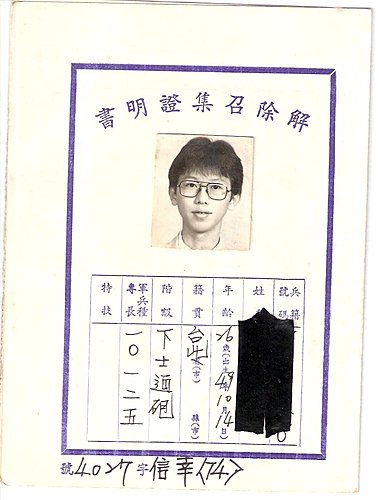 解除召集證明書
兵籍號碼
姓
年齡 26歲(出生49年10月14日)
籍貫 台北(市) 縣(市)
階級 下士迴砲
軍兵種專長 一〇一二五
特技
<74>幸信字4027號